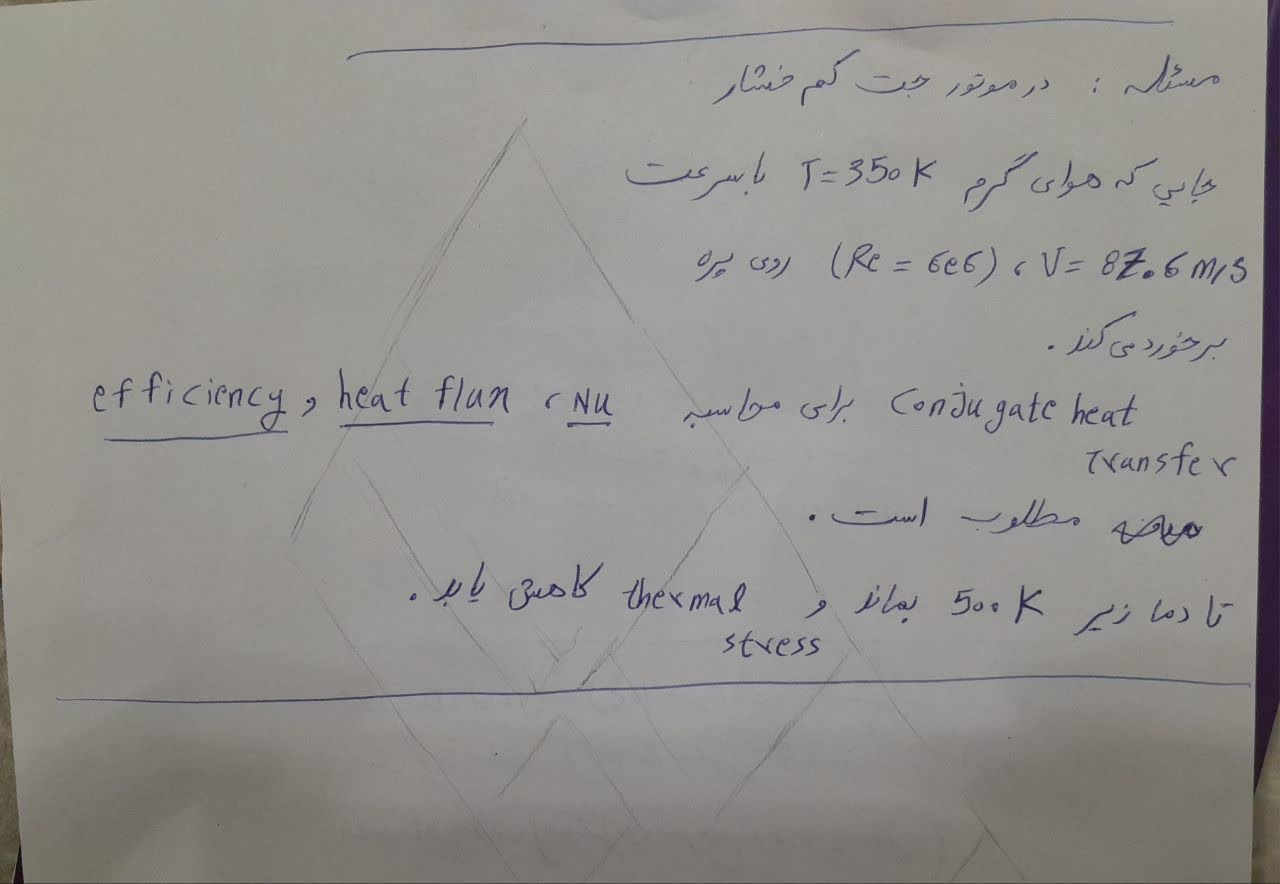 مسئله : در موتور جت کم فشار
جایی که هوای گرم T=350K با سرعت
V= 87.6 m/s ، (Re = 6e6) روی پره
برخورد می‌کند .
Conjugate heat transfer برای محاسبه Nu ، heat flux و efficiency
مطلوب است .
تا دما زیر 500K بماند و thermal stress کاهش یابد .